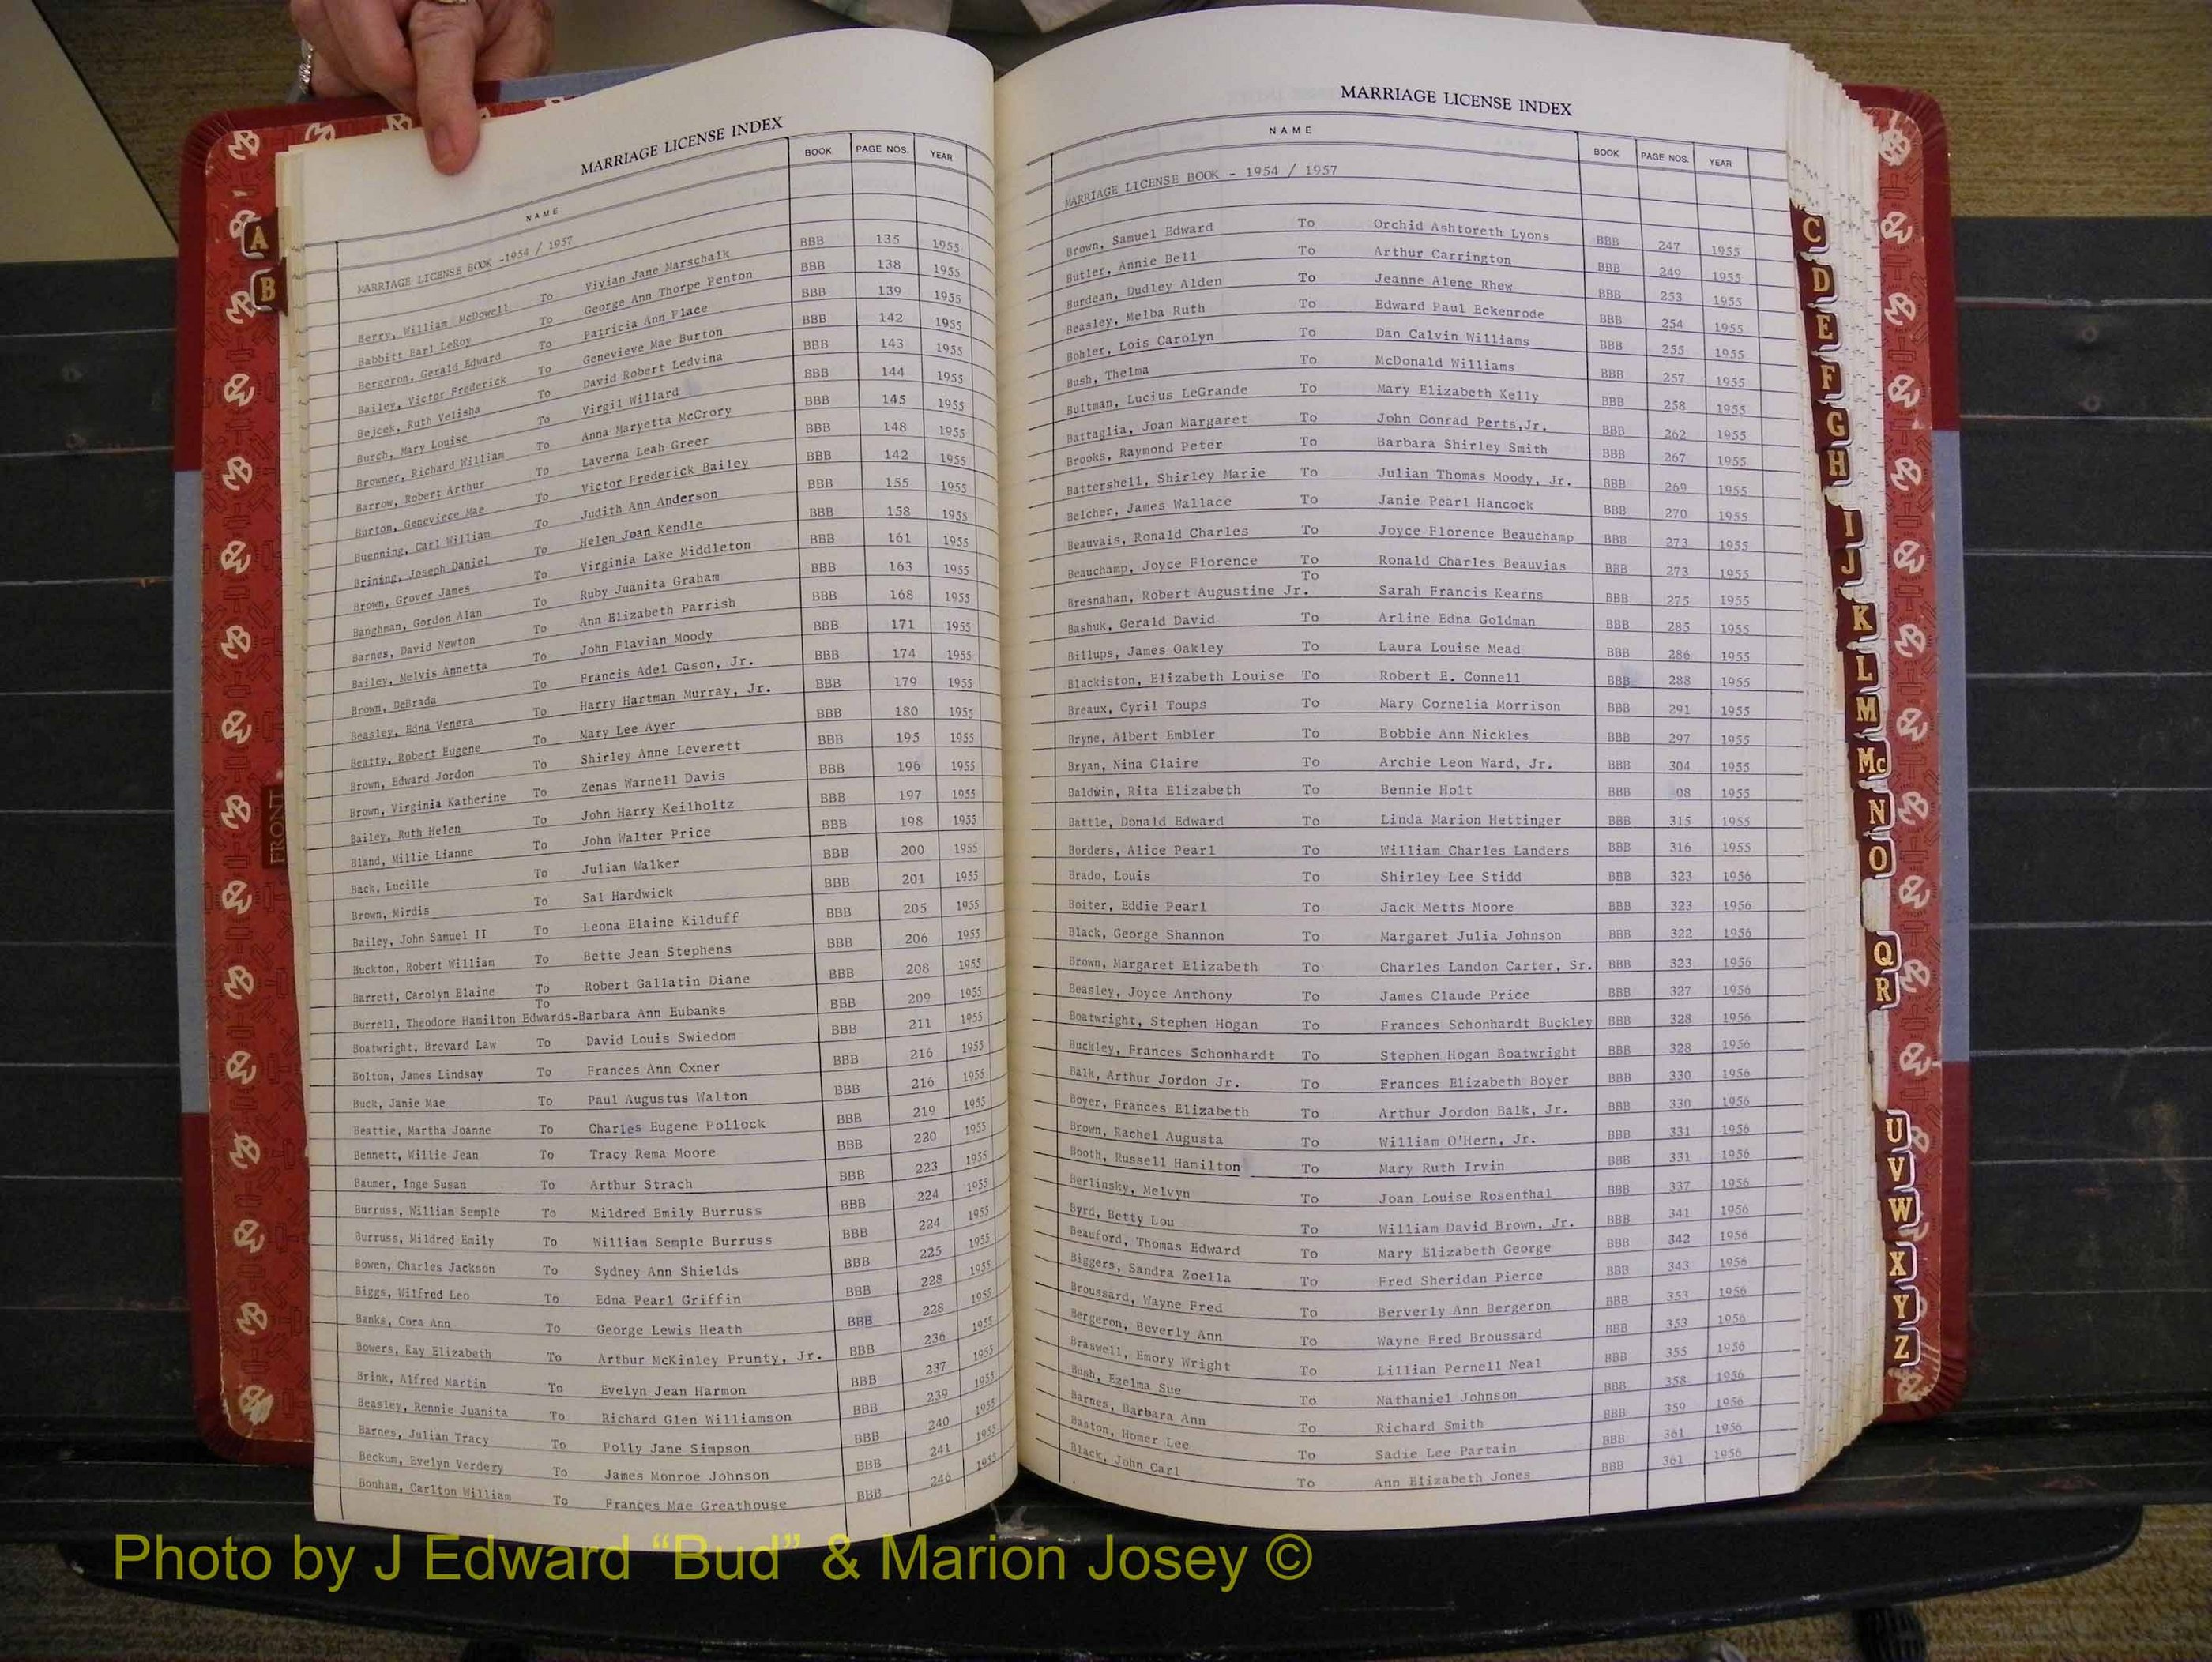 MARRIAGE LICENSE INDEX
NAME BOOK PAGE NOS. YEAR
MARRIAGE LICENSE BOOK -1954 / 1957
Berry, William McDowell To Vivian Jane Marschalk BBB 135 1955
Babbitt Earl LeRoy To George Ann Thorpe Penton BBB 138 1955
Bergeron, Gerald Edward To Patricia Ann Place BBB 139 1955
Bailey, Victor Frederick To Genevieve Mae Burton BBB 142 1955
Bejcek, Ruth Velisha To David Robert Ledvina BBB 143 1955
Burch, Mary Louise To Virgil Willard BBB 144 1955
Browner, Richard William To Anna Maryetta McCrory BBB 145 1955
Barrow, Robert Arthur To Laverna Leah Greer BBB 148 1955
Burton, Geneviece Mae To Victor Frederick Bailey BBB 142 1955
Buenning, Carl William To Judith Ann Anderson BBB 155 1955
Brining, Joseph Daniel To Helen Joan Kendle BBB 158 1955
Brown, Grover James To Virginia Lake Middleton BBB 161 1955
Banghman, Gordon Alan To Ruby Juanita Graham BBB 163 1955
Barnes, David Newton To Ann Elizabeth Parrish BBB 168 1955
Bailey, Melvis Annetta To John Flavian Moody BBB 171 1955
Brown, DeBrada To Francis Adel Cason, Jr. BBB 174 1955
Beasley, Edna Venera To Harry Hartman Murray, Jr. BBB 179 1955
Beatty, Robert Eugene To Mary Lee Ayer BBB 180 1955
Brown, Edward Jordon To Shirley Anne Leverett BBB 195 1955
Brown, Virginia Katherine To Zenas Warnell Davis BBB 196 1955
Bailey, Ruth Helen To John Harry Keilholtz BBB 197 1955
Bland, Millie Lianne To John Walter Price BBB 198 1955
Back, Lucille To Julian Walker BBB 200 1955
Brown, Mirdis To Sal Hardwick BBB 201 1955
Bailey, John Samuel II To Leona Elaine Kilduff BBB 205 1955
Buckton, Robert William To Bette Jean Stephens BBB 206 1955
Barrett, Carolyn Elaine To Robert Gallatin Diane BBB 208 1955
To
Burrell, Theodore Hamilton Edwards-Barbara Ann Eubanks BBB 209 1955
Boatwright, Brevard Law To David Louis Swiedom BBB 211 1955
Bolton, James Lindsay To Frances Ann Oxner BBB 216 1955
Buck, Janie Mae To Paul Augustus Walton BBB 216 1955
Beattie, Martha Joanne To Charles Eugene Pollock BBB 219 1955
Bennett, Willie Jean To Tracy Rema Moore BBB 220 1955
Baumer, Inge Susan To Arthur Strach BBB 223 1955
Burruss, William Semple To Mildred Emily Burruss BBB 224 1955
Burruss, Mildred Emily To William Semple Burruss BBB 224 1955
Bowen, Charles Jackson To Sydney Ann Shields BBB 225 1955
Biggs, Wilfred Leo To Edna Pearl Griffin BBB 228 1955
Banks, Cora Ann To George Lewis Heath BBB 228 1955
Bowers, Kay Elizabeth To Arthur McKinley Prunty, Jr. BBB 236 1955
Brink, Alfred Martin To Evelyn Jean Harmon BBB 237 1955
Beasley, Rennie Juanita To Richard Glen Williamson BBB 239 1955
Barnes, Julian Tracy To Polly Jane Simpson BBB 240 1955
Beckum, Evelyn Verdery To James Monroe Johnson BBB 241 1955
Bonham, Carlton William To Frances Mae Greathouse BBB 246 1955
MARRIAGE LICENSE INDEX
NAME BOOK PAGE NOS. YEAR
MARRIAGE LICENSE BOOK - 1954 / 1957
Brown, Samuel Edward To Orchid Ashtoreth Lyons BBB 247 1955
Butler, Annie Bell To Arthur Carrington BBB 249 1955
Burdean, Dudley Alden To Jeanne Alene Rhew BBB 253 1955
Beasley, Melba Ruth To Edward Paul Eckenrode BBB 254 1955
Bohler, Lois Carolyn To Dan Calvin Williams BBB 255 1955
Bush, Thelma To McDonald Williams BBB 257 1955
Bultman, Lucius LeGrande To Mary Elizabeth Kelly BBB 258 1955
Battaglia, Joan Margaret To John Conrad Perts,Jr. BBB 262 1955
Brooks, Raymond Peter To Barbara Shirley Smith BBB 267 1955
Battershell, Shirley Marie To Julian Thomas Moody, Jr. BBB 269 1955
Belcher, James Wallace To Janie Pearl Hancock BBB 270 1955
Beauvais, Ronald Charles To Joyce Florence Beauchamp BBB 273 1955
Beauchamp, Joyce Florence To Ronald Charles Beauvias BBB 273 1955
To
Bresnahan, Robert Augustine Jr. Sarah Francis Kearns BBB 275 1955
Bashuk, Gerald David To Arline Edna Goldman BBB 285 1955
Billups, James Oakley To Laura Louise Mead BBB 286 1955
Blackiston, Elizabeth Louise To Robert E. Connell BBB 288 1955
Breaux, Cyril Toups To Mary Cornelia Morrison BBB 291 1955
Bryne, Albert Embler To Bobbie Ann Nickles BBB 297 1955
Bryan, Nina Claire To Archie Leon Ward, Jr. BBB 304 1955
Baldwin, Rita Elizabeth To Bennie Holt BBB 08 1955
Battle, Donald Edward To Linda Marion Hettinger BBB 315 1955
Borders, Alice Pearl To William Charles Landers BBB 316 1955
Brado, Louis To Shirley Lee Stidd BBB 323 1956
Boiter, Eddie Pearl To Jack Metts Moore BBB 323 1956
Black, George Shannon To Margaret Julia Johnson BBB 322 1956
Brown, Margaret Elizabeth To Charles Landon Carter, Sr. BBB 323 1956
Beasley, Joyce Anthony To James Claude Price BBB 327 1956
Boatwright, Stephen Hogan To Frances Schonhardt Buckley BBB 328 1956
Buckley, Frances Schonhardt To Stephen Hogan Boatwright BBB 328 1956
Balk, Arthur Jordon Jr. To Frances Elizabeth Boyer BBB 330 1956
Boyer, Frances Elizabeth To Arthur Jordon Balk, Jr. BBB 330 1956
Brown, Rachel Augusta To William O'Hern, Jr. BBB 331 1956
Booth, Russell Hamilton To Mary Ruth Irvin BBB 331 1956
Berlinsky, Melvyn To Joan Louise Rosenthal BBB 337 1956
Byrd, Betty Lou To William David Brown, Jr. BBB 341 1956
Beauford, Thomas Edward To Mary Elizabeth George BBB 342 1956
Biggers, Sandra Zoella To Fred Sheridan Pierce BBB 343 1956
Broussard, Wayne Fred To Berverly Ann Bergeron BBB 353 1956
Bergeron, Beverly Ann To Wayne Fred Broussard BBB 353 1956
Braswell, Emory Wright To Lillian Pernell Neal BBB 355 1956
Bush, Ezelma Sue To Nathaniel Johnson BBB 358 1956
Barnes, Barbara Ann To Richard Smith BBB 359 1956
Baston, Homer Lee To Sadie Lee Partain BBB 361 1956
Black, John Carl To Ann Elizabeth Jones BBB 361 1956
A
B
FRONT
C
D
E
F
G
H
I
J
K
L
M
Mc
N
O
Q
R
U
V
W
X
Y
Z
Photo by J Edward “Bud” & Marion Josey ©